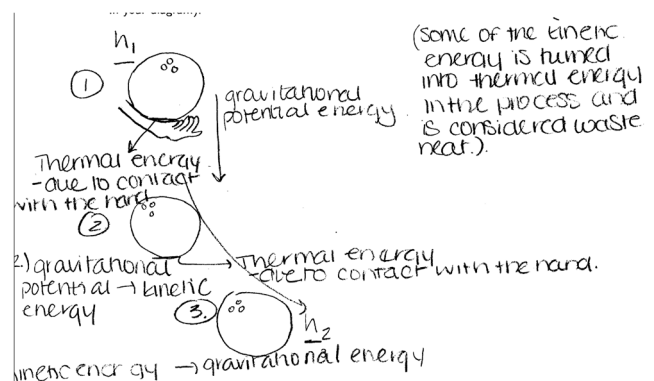 in your diagram).
h₁
①
gravitational
potential energy
(some of the kinetic
energy is turned
into thermal energy
in the process and
is considered waste
heat.).
Thermal energy
-due to contact
with the hand
②
2.) gravitational
potential → kinetic
energy
Thermal energy
-due to contact with the hand.
③.
h₂
kinetic energy → gravitational energy